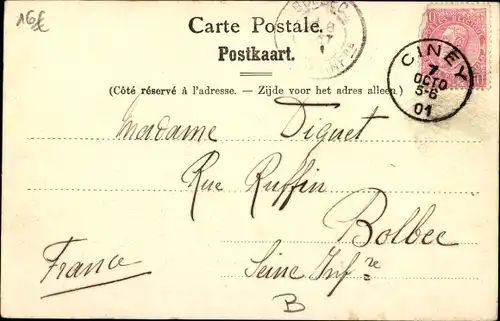 16€
Carte Postale.
Postkaart.
(Côté réservé à l'adresse. — Zijde voor het adres alleen.)
CINEY
7
OCTO
5-6
01
Madame Diguet
Rue Ruffin
Bolbec
France
Seine Infre
B